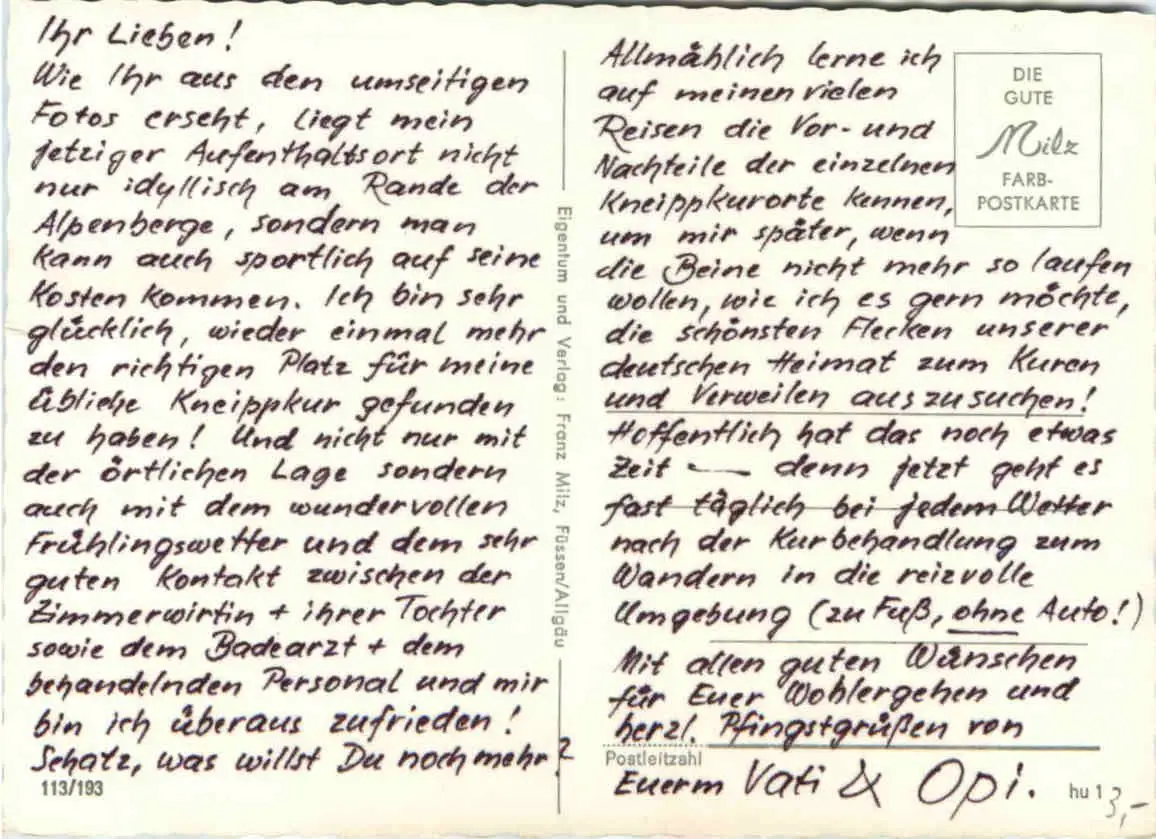 Ihr Lieben!
Wie Ihr aus den umseitigen
Fotos erseht, liegt mein
jetziger Aufenthaltsort nicht
nur idyllisch am Rande der
Alpenberge, sondern man
kann auch sportlich auf seine
Kosten kommen. Ich bin sehr
glücklich, wieder einmal mehr
den richtigen Platz für meine
übliche Kneippkur gefunden
zu haben! Und nicht nur mit
der örtlichen Lage sondern
auch mit dem wundervollen
Frühlingswetter und dem sehr
guten Kontakt zwischen der
Zimmerwirtin + ihrer Tochter
sowie dem Badearzt + dem
behandelnden Personal und mir
bin ich überaus zufrieden!
Schatz, was willst Du noch mehr?
113/193
Eigentum und Verlag: Franz Milz, Füssen/Allgäu
Allmählich lerne ich
auf meinen vielen
Reisen die Vor- und
Nachteile der einzelnen
Kneippkurorte kennen,
um mir später, wenn
die Beine nicht mehr so laufen
wollen, wie ich es gern möchte,
die schönsten Flecken unserer
deutschen Heimat zum Kuren
und Verweilen auszusuchen!
Hoffentlich hat das noch etwas
Zeit — denn jetzt geht es
fast täglich bei jedem Wetter
nach der Kurbehandlung zum
Wandern in die reizvolle
Umgebung (zu Fuß, ohne Auto!)
Mit allen guten Wünschen
für Euer Wohlergehen und
herzl. Pfingstgrüßen von
Postleitzahl
Euerm Vati & Opi.
hu 1
3,-
DIE
GUTE
Milz
FARB-
POSTKARTE